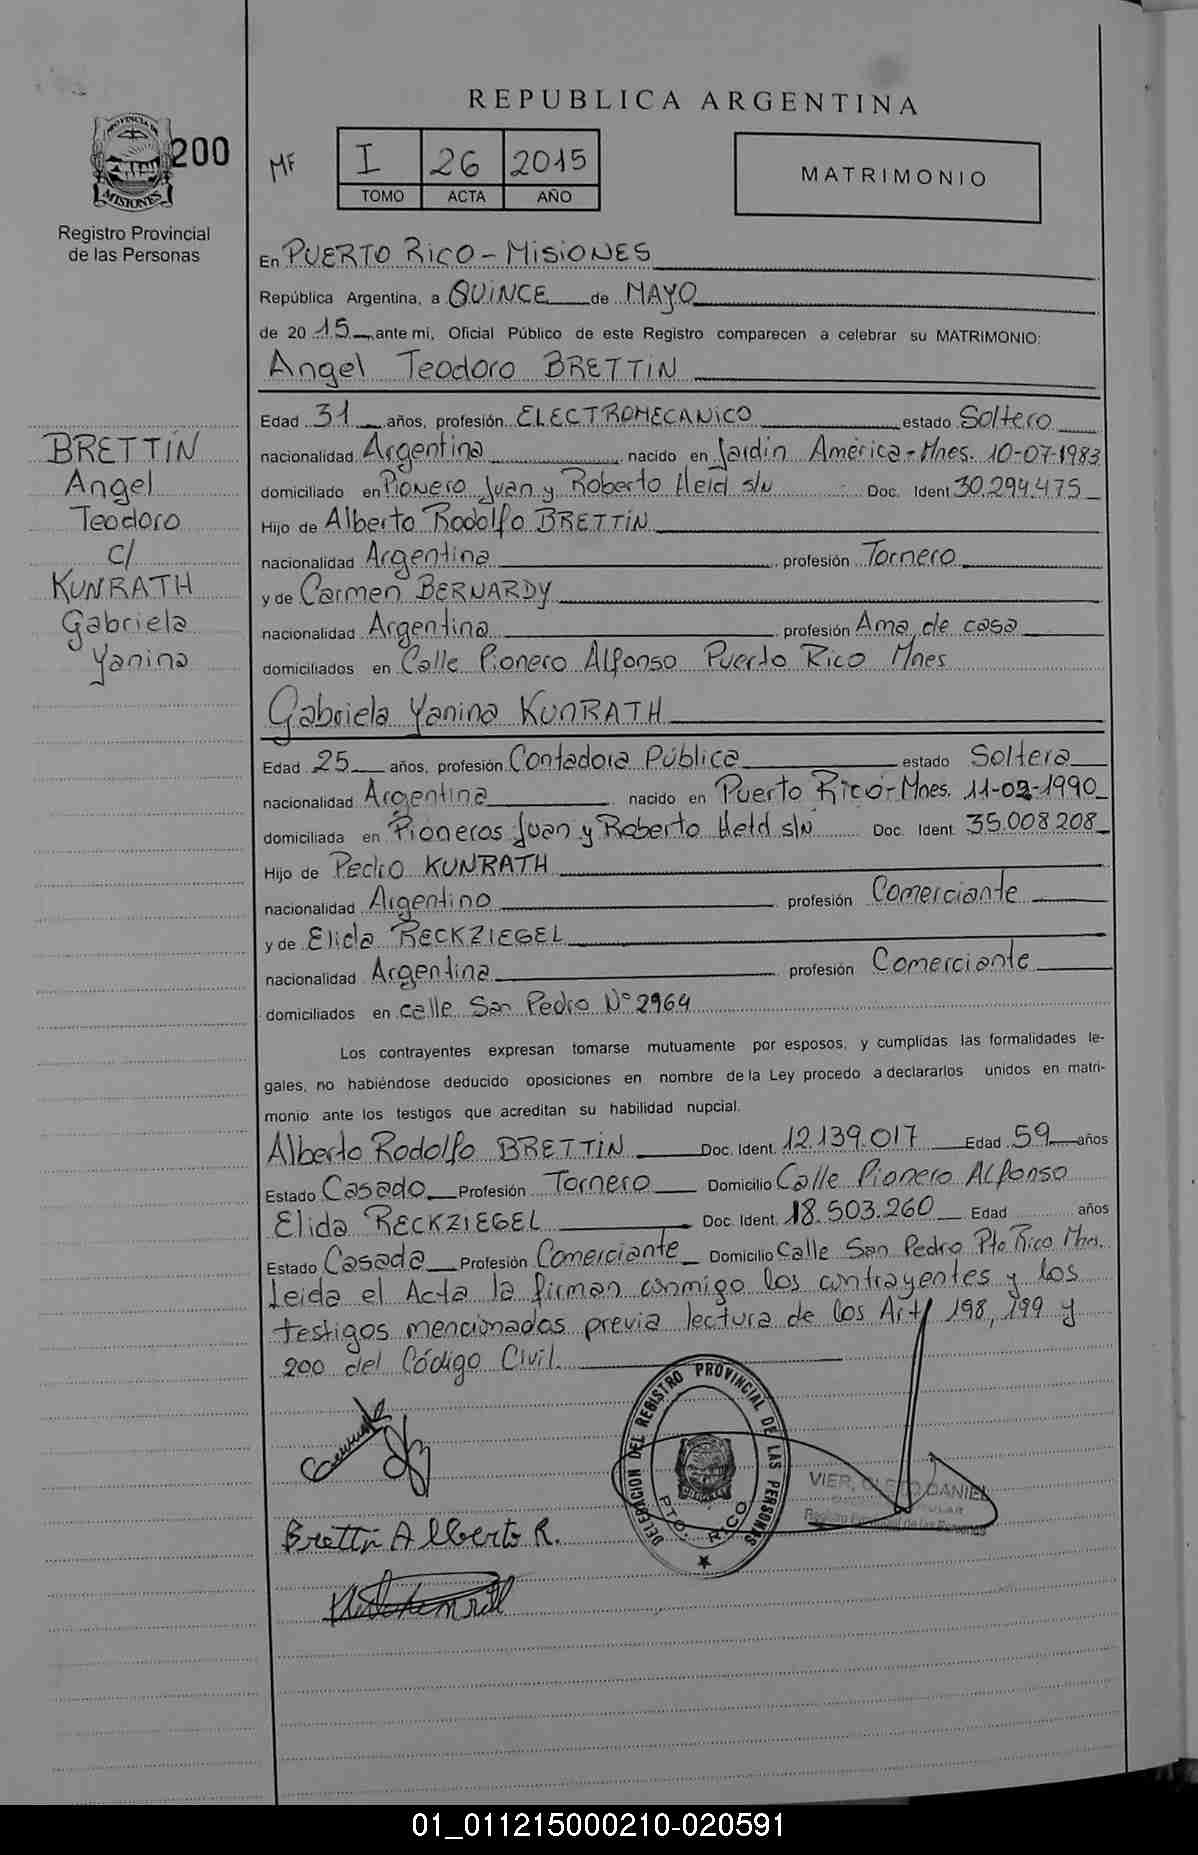 REPUBLICA ARGENTINA
PROVINCIA DE
MISIONES
200
Registro Provincial
de las Personas
MF
I 26 2015
TOMO ACTA AÑO
MATRIMONIO
En PUERTO RICO - MISIONES
República Argentina, a QUINCE de MAYO
de 20 15 ante mi, Oficial Público de este Registro comparecen a celebrar su MATRIMONIO:
Angel Teodoro BRETTIN
Edad 31 años, profesión ELECTROMECANICO estado Soltero
nacionalidad Argentina nacido en Jardín América - Mnes. 10-07-1983
domiciliado en Pionero Juan y Roberto Held s/n Doc. Ident 30.294.475
Hijo de Alberto Rodolfo BRETTIN
nacionalidad Argentina profesión Tornero
y de Carmen BERNARDY
nacionalidad Argentina profesión Ama de casa
domiciliados en Calle Pionero Alfonso Puerto Rico Mnes
Gabriela Yanina KUNRATH
Edad 25 años, profesión Contadora Pública estado Soltera
nacionalidad Argentina nacido en Puerto Rico - Mnes. 11-02-1990
domiciliada en Pioneros Juan y Roberto Held s/n Doc. Ident. 35.008.208
Hijo de Pedro KUNRATH
nacionalidad Argentino profesión Comerciante
y de Elida RECKZIEGEL
nacionalidad Argentina profesión Comerciante
domiciliados en calle San Pedro N° 2964
Los contrayentes expresan tomarse mutuamente por esposos, y cumplidas las formalidades le-
gales, no habiéndose deducido oposiciones en nombre de la Ley procedo a declararlos unidos en matri-
monio ante los testigos que acreditan su habilidad nupcial.
Alberto Rodolfo BRETTIN Doc. Ident. 12.139.017 Edad 59 años
Estado Casado Profesión Tornero Domicilio Calle Pionero Alfonso
Elida RECKZIEGEL Doc. Ident. 18.503.260 Edad años
Estado Casada Profesión Comerciante Domicilio Calle San Pedro Pto Rico Mnes.
Leida el Acta la firman conmigo los contrayentes y los
testigos mencionados previa lectura de los Art 198, 199 y
200 del Código Civil.
BRETTIN
Angel
Teodoro
C/
KUNRATH
Gabriela
Yanina
DELEGACION DEL REGISTRO PROVINCIAL DE LAS PERSONAS
PTO. RICO
VIER, CLETO DANIEL
Registro Provincial de las Personas
Brettin Alberto R.
01_011215000210-020591